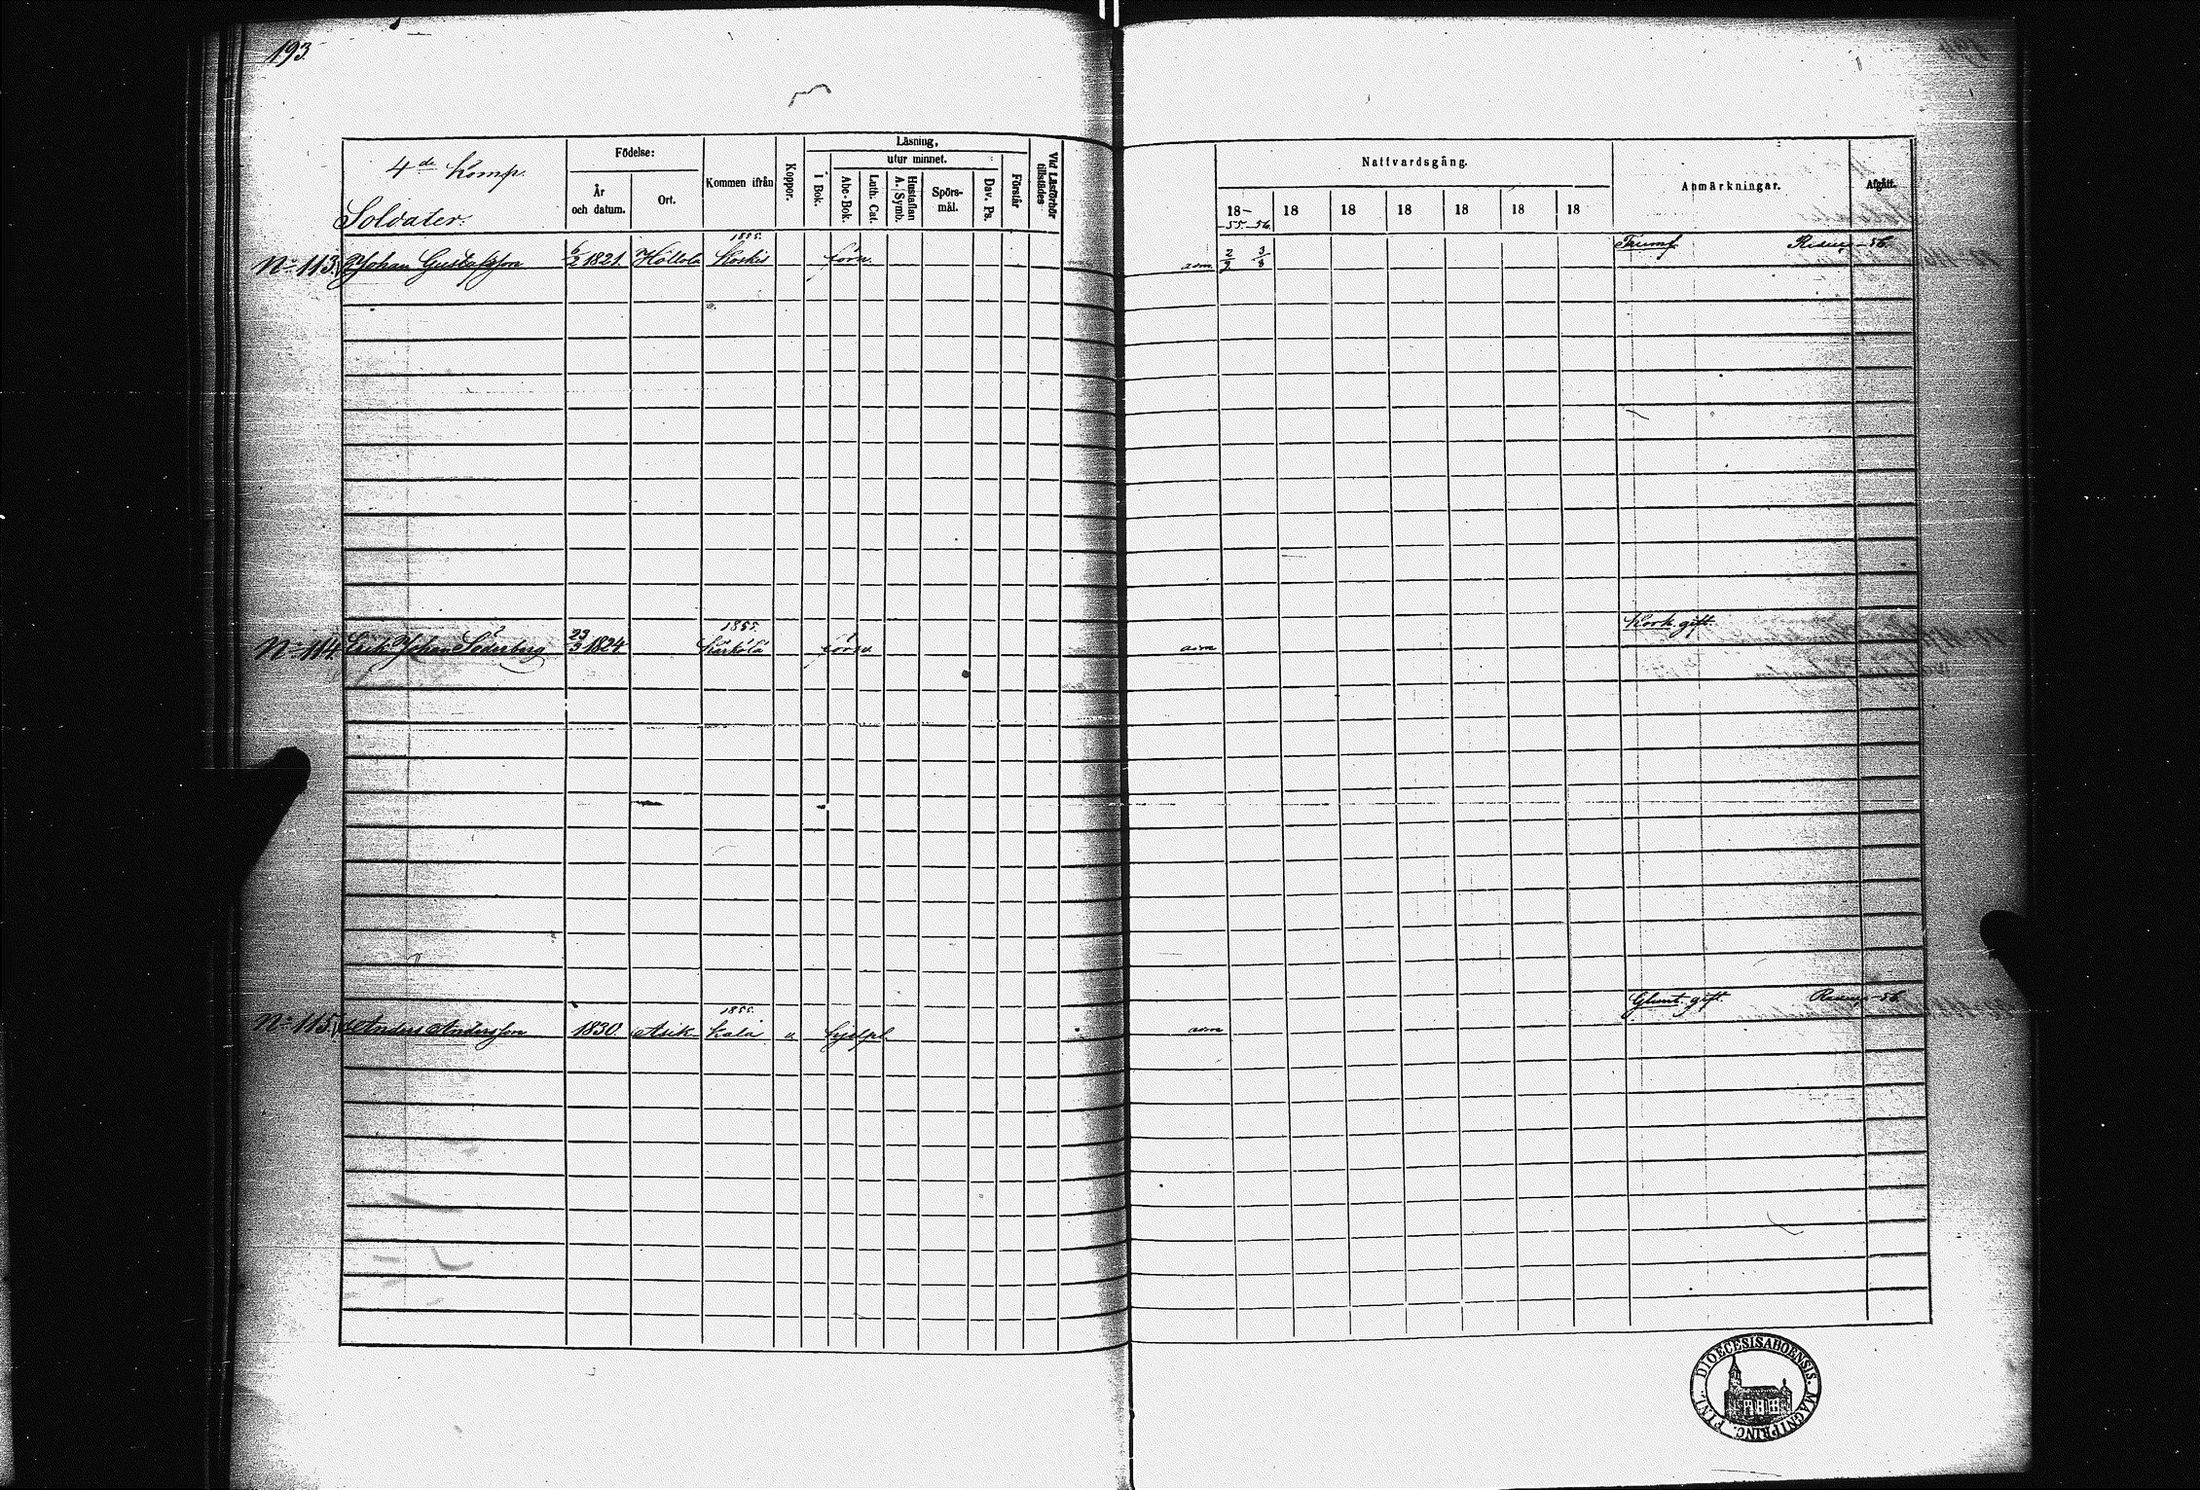 193.
4de Komp.
Soldater.
Födelse:
År och datum.
Ort.
Kommen ifrån
Koppor.
Läsning,
utur minnet.
I Bok.
Abc-Bok.
Luth. Cat.
Hustaflan A. Symb.
Spörs-mål.
Dav. Ps.
Förstår
Vid Läsförhör tillstädes
Nattvardsgång.
18-55.-56. 18 18 18 18 18 18
Anmärkningar.
Afgått.
No 113. Johan Gustafsson 6/2 1821. Hollola 1855. Koskis försv. adm 2/9 3/8 Trumf. -56.
No 114. Erik Johan Söderberg 23/3 1824 1855. Kärkölä försv. adm gift.
No 115. Anders Andersson 1830. Asik- kala 1855. hjelpl. adm Glunt. gift. -56.
FINL. DIOECESIS ABOENSIS. MAGNI PRINC.